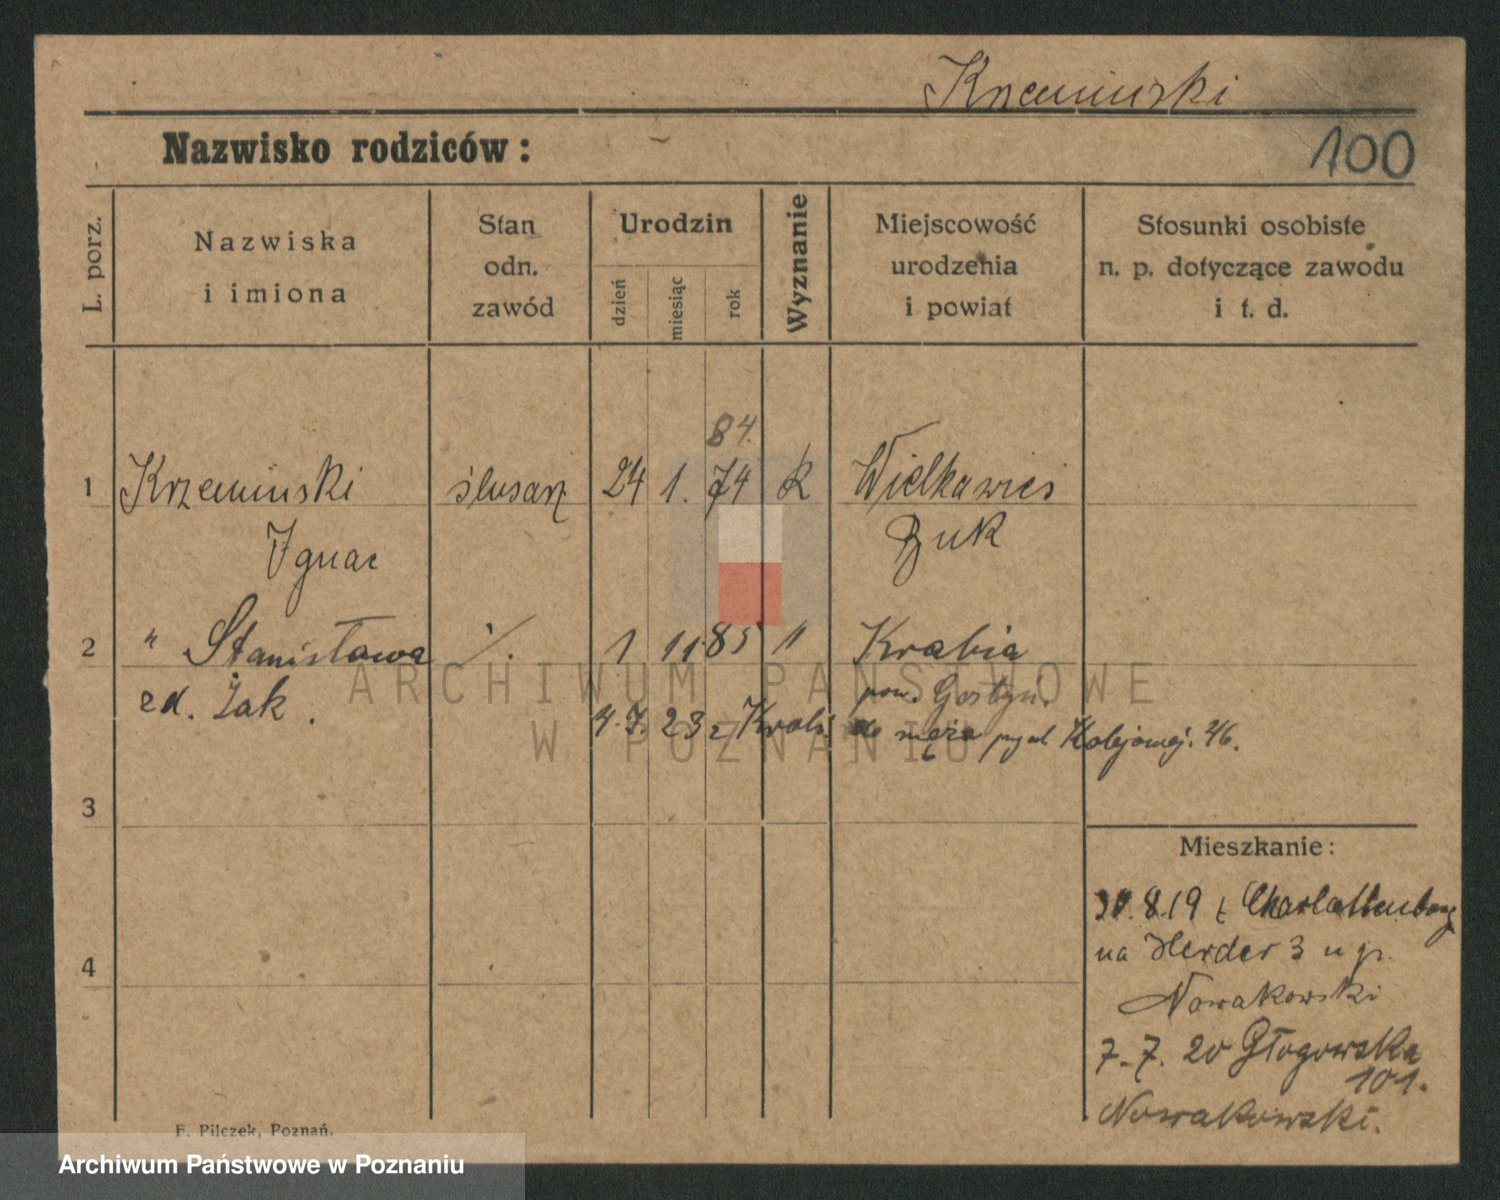 Krzeminski
Nazwisko rodziców:
100
L. porz.
Nazwiska
i imiona
Stan
odn.
zawód
Urodzin
dzień
miesiąc
rok
Wyznanie
Miejscowość
urodzenia
i powiat
Stosunki osobiste
n. p. dotyczące zawodu
i t. d.
84.
1 Krzeminski ślusarz 24 1. 74 k Wielkawieś
Ignac Buk
2 " Stanisława ·/. 1 11. 85 " Krobia
zd. Żak. pow. Gostyń.
4.7. 23 z Krobi do męża Kolejowej. 46.
3
Mieszkanie:
30.8.19 z Charlottenburg
na Herder 3 u p.
4
Nowakowski
7.7. 20 Głogowska
101.
Nowakowski.
F. Pilczek, Poznań.
ARCHIWUM PAŃSTWOWE
W POZNANIU
Archiwum Państwowe w Poznaniu